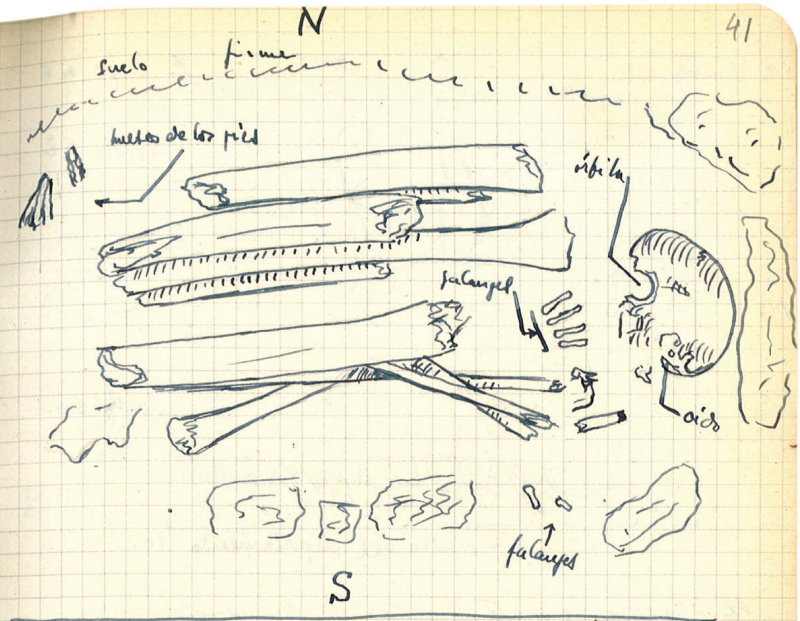 N
41
suelo firme
huesos de los pies
órbita
falanges
oido
falanges
S